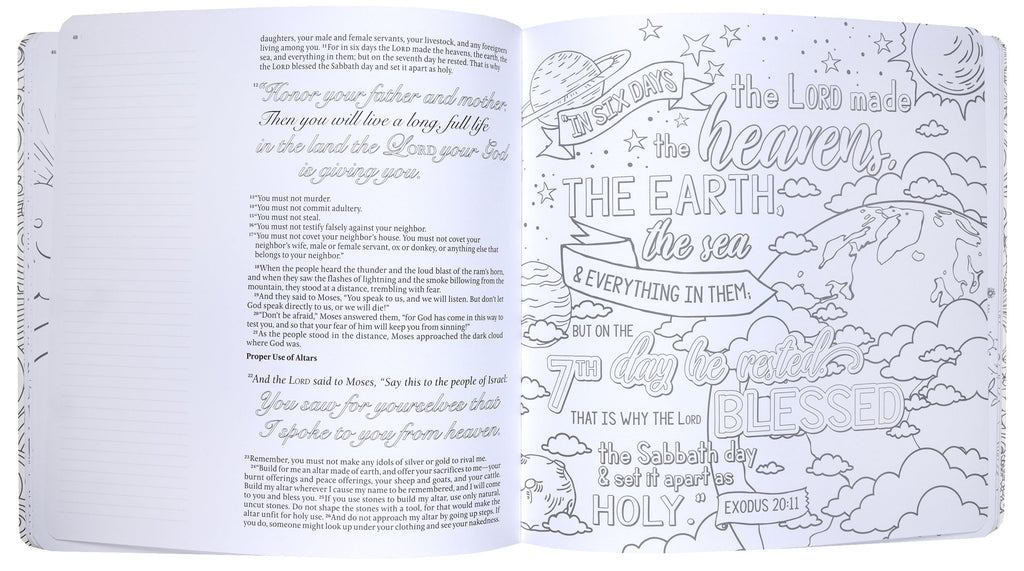 68
daughters, your male and female servants, your livestock, and any foreigners
living among you. 11For in six days the LORD made the heavens, the earth, the
sea, and everything in them; but on the seventh day he rested. That is why
the LORD blessed the Sabbath day and set it apart as holy.
12“Honor your father and mother.
Then you will live a long, full life
in the land the LORD your God
is giving you.
13“You must not murder.
14“You must not commit adultery.
15“You must not steal.
16“You must not testify falsely against your neighbor.
17“You must not covet your neighbor’s house. You must not covet your
neighbor’s wife, male or female servant, ox or donkey, or anything else that
belongs to your neighbor.”
18When the people heard the thunder and the loud blast of the ram’s horn,
and when they saw the flashes of lightning and the smoke billowing from the
mountain, they stood at a distance, trembling with fear.
19And they said to Moses, “You speak to us, and we will listen. But don’t let
God speak directly to us, or we will die!”
20“Don’t be afraid,” Moses answered them, “for God has come in this way to
test you, and so that your fear of him will keep you from sinning!”
21As the people stood in the distance, Moses approached the dark cloud
where God was.
Proper Use of Altars
22And the LORD said to Moses, “Say this to the people of Israel:
You saw for yourselves that
I spoke to you from heaven.
23Remember, you must not make any idols of silver or gold to rival me.
24“Build for me an altar made of earth, and offer your sacrifices to me—your
burnt offerings and peace offerings, your sheep and goats, and your cattle.
Build my altar wherever I cause my name to be remembered, and I will come
to you and bless you. 25If you use stones to build my altar, use only natural,
uncut stones. Do not shape the stones with a tool, for that would make the
altar unfit for holy use. 26And do not approach my altar by going up steps. If
you do, someone might look up under your clothing and see your nakedness.
“IN SIX DAYS
the LORD made
the heavens,
THE EARTH,
the sea
& EVERYTHING IN THEM;
BUT ON THE
7TH day he rested.
THAT IS WHY THE LORD
BLESSED
the Sabbath day
& set it apart as
HOLY.”
EXODUS 20:11